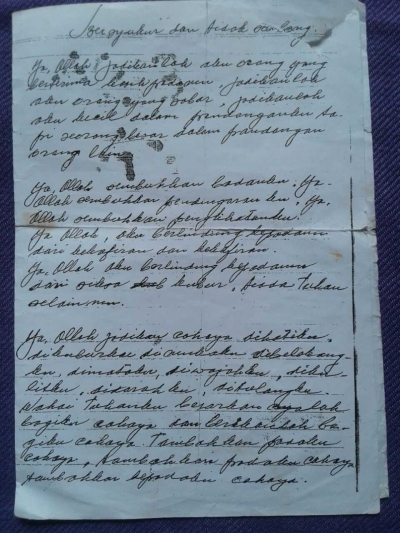 Bersyukur dan tidak sombong.
Ya, Allah jadikanlah aku orang yang
berterima kasih padamu, jadikanlah
aku orang yang sabar, jadikanlah
aku kecil dalam pandanganku ta-
pi seorang besar dalam pandangan
orang lain
Ya, Allah sembuhkan badanku. Ya-
Allah sembuhkan pendengaran ku, Ya,
Allah sembuhkan penglihatanku.
Ya Allah, aku berlindung kepadamu
dari kekafiran dan kekafiran.
Ya, Allah aku berlindung kepadamu
dari siksa kubur, tiada Tuhan
selain mu.
Ya, Allah jadikan cahaya dihatiku,
dikuburku di dibelakang-
ku, dimataku, diwajahku, diku-
litku, didarahku, ditulangku.
Wahai Tuhanku besarkan
bagiku cahaya dan berikanlah ba-
giku cahaya. Tambahkan padaku
cahaya, tambahkan padaku cahaya
tambahkan kepadaku cahaya.